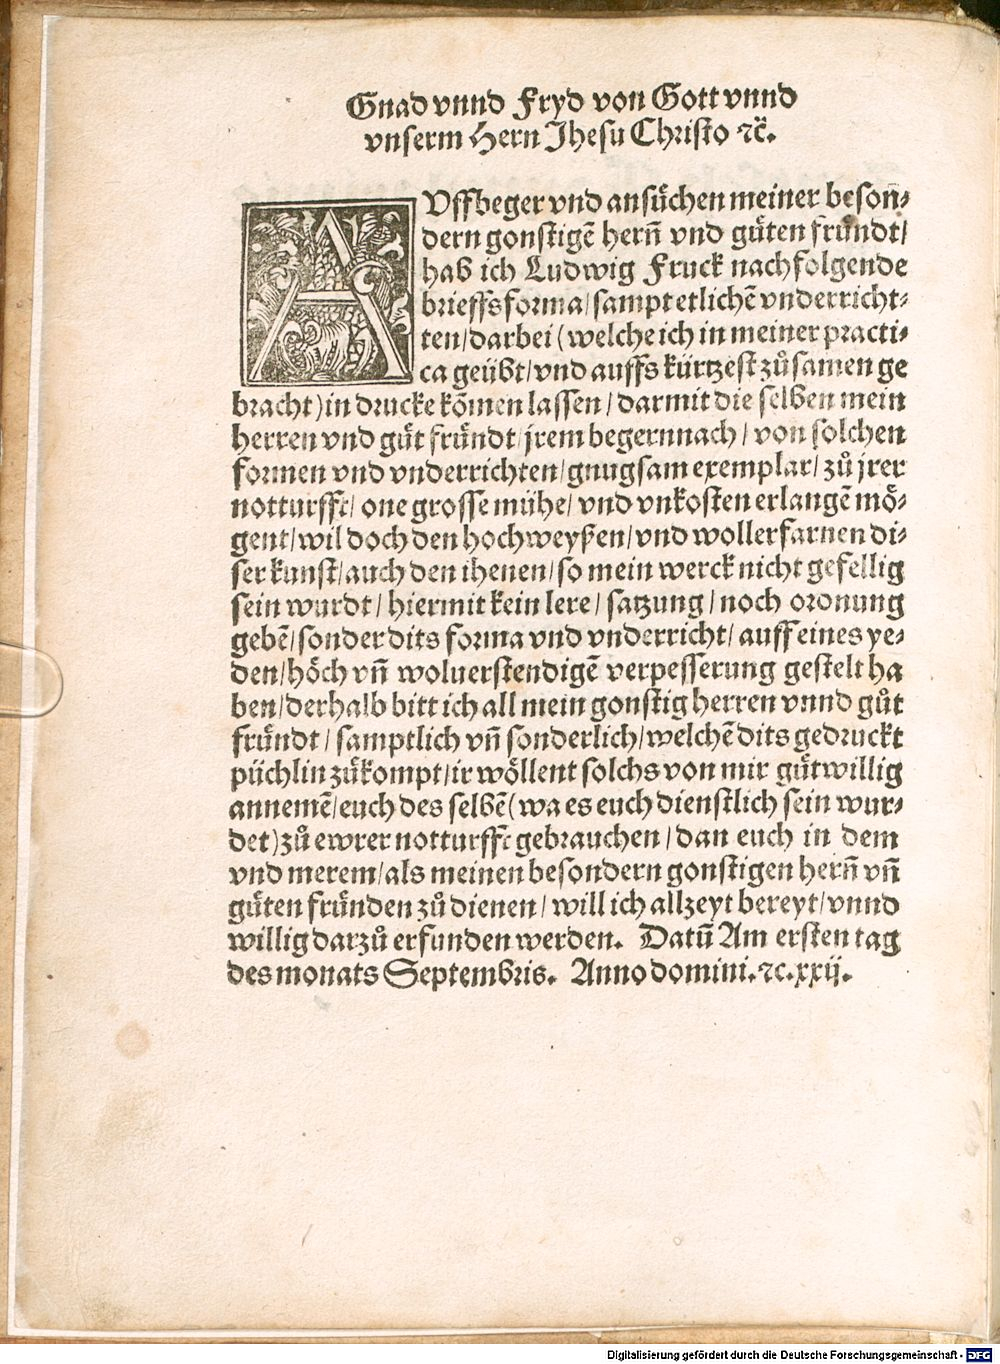 Gnad vnnd Fryd von Gott vnnd
vnserm Hern Jhesu Christo ⁊c̃.
AVffbeger vnd ansůchen meiner beson⸗
dern gonstigẽ herñ vnd gůten frůndt/
hab ich Ludwig Fruck nachfolgende
brieffs forma/ sampt etlichẽ vnderricht⸗
ten/ darbei (welche ich in meiner practi⸗
ca geübt/ vnd auffs kürtzest zůsamen ge
bracht) in drucke kõmen lassen/ darmit die selben mein
herren vnd gůt frůndt/ jrem begern nach/ von solchen
formen vnd vnderrichten/ gnugsam exemplar/ zů jrer
notturfft/ one grosse mühe/ vnd vnkosten erlangẽ mö⸗
gent/ wil doch den hochweyßen/ vnd wollerfarnen di⸗
ser kunst/ auch den ihenen/ so mein werck nicht gefellig
sein wurdt/ hiermit kein lere/ satzung/ noch ordnung
gebẽ/ sonder dits forma vnd vnderricht/ auff eines ye⸗
den/ höch vñ woluerstendigẽ verpesserung gestelt ha
ben/ derhalb bitt ich all mein gonstig herren vnnd gůt
frůndt/ samptlich vñ sonderlich/ welchẽ dits gedruckt
püchlin zůkompt/ ir wöllent solchs von mir gůtwillig
annemẽ/ euch des selbẽ (wa es euch dienstlich sein wur⸗
det) zů ewrer notturfft gebrauchen/ dan euch in dem
vnd merem/ als meinen besondern gonstigen herñ vñ
gůten frůnden zů dienen/ will ich allzeyt bereyt/ vnnd
willig darzů erfunden werden. Datũ Am ersten tag
des monats Septembris. Anno domini. ⁊c. xxij.
Digitalisierung gefördert durch die Deutsche Forschungsgemeinschaft - DFG